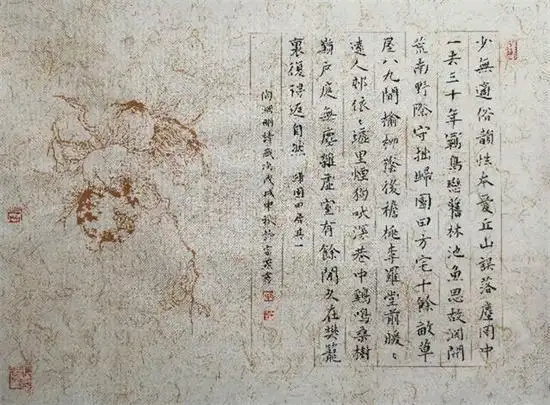 少無適俗韻性本愛丘山誤落塵网中
一去三十年羈鳥戀舊林池魚思故淵開
荒南野際守拙歸園田方宅十餘畝草
屋八九間榆柳蔭後檐桃李羅堂前曖〻
遠人邨依〻墟里煙狗吠深巷中鷄鳴桑樹
顛戶庭無塵雜虛室有餘閒久在樊籠
裏復得返自然 歸園田居其一
陶淵明詩歲次戊戌中秋於